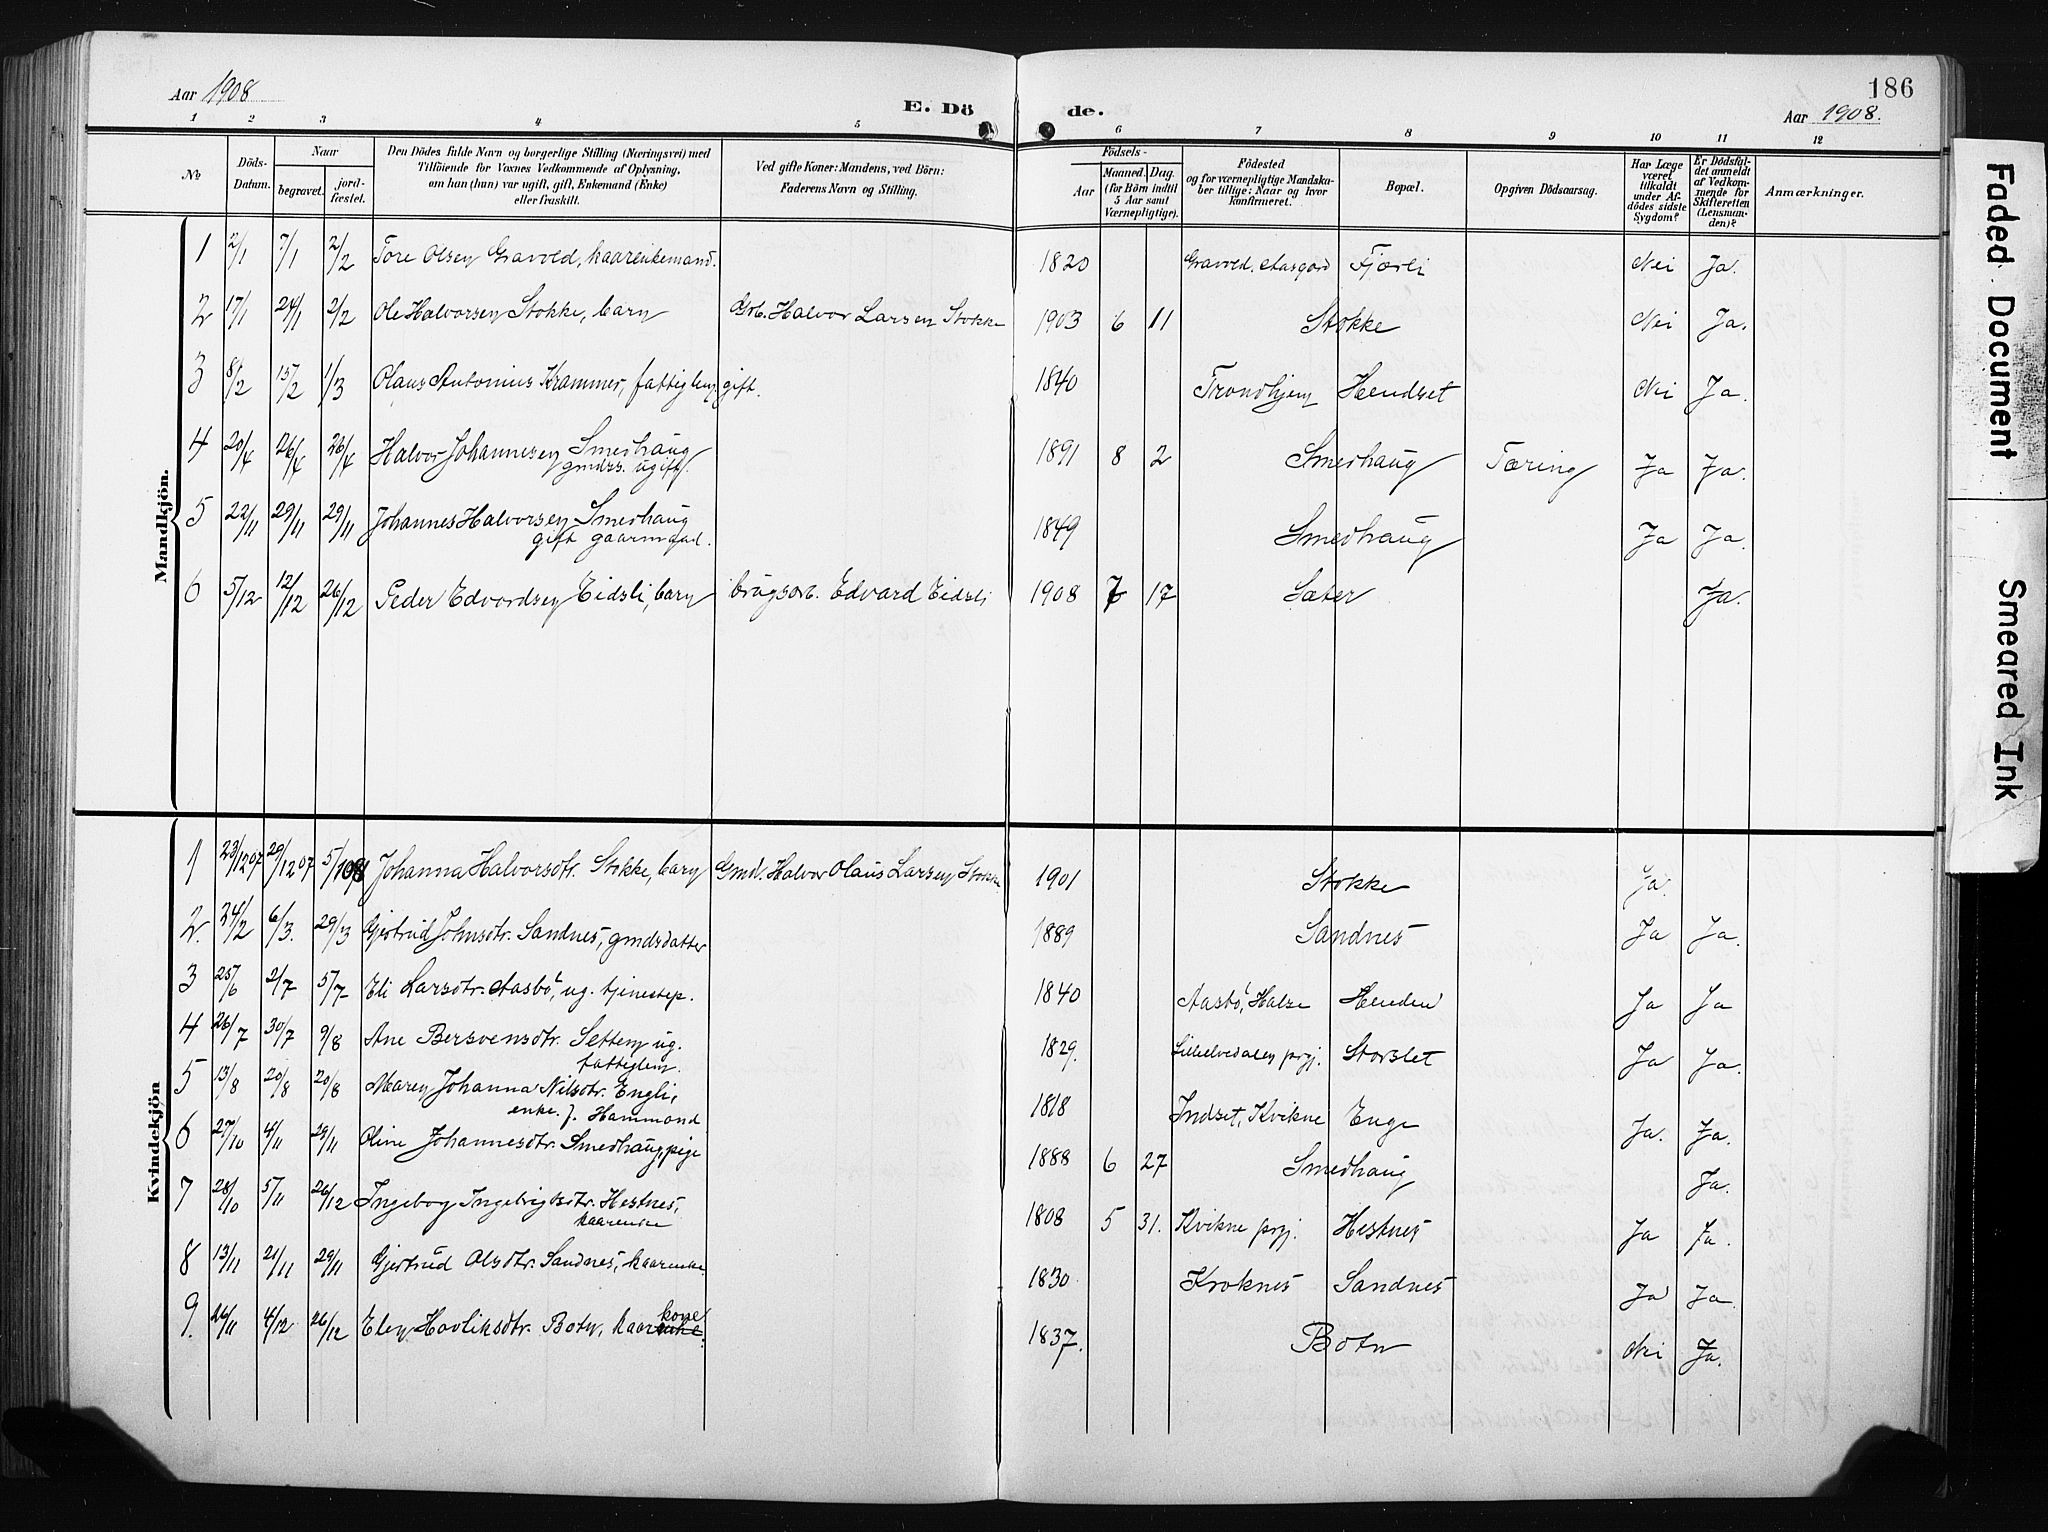 Aar 1908
E. Döde.
186
Aar 1908.
1 2 3 4 5 6 7 8 9 10 11 12
No
Döds-Datum.
Naar
begravet.
jord-fæstet.
Den Dödes fulde Navn og borgerlige Stilling (Næringsvei) med
Tilföiende for Voxnes Vedkommende af Oplysning,
om han (hun) var ugift, gift, Enkemand (Enke)
eller fraskilt.
Ved gifte Koner: Mandens, ved Börn:
Faderens Navn og Stilling.
Födsels-
Aar
Maaned. Dag.
(for Börn indtil
5 Aar samt
Værnepligtige).
Födested
og for værnepligtige Mandska-
ber tillige: Naar og hvor
konfirmeret.
Bopæl.
Opgiven Dödsaarsag.
Har Læge
været
tilkaldt
under Af-
dödes sidste
Sygdom?
Er Dödsfal-
det anmeldt
af Vedkom-
mende for
Skifteretten
(Lensman-
den)?
Anmærkninger.
Mandkjön.
1 2/1 7/1 2/2 Tore Olsen Gravold, kaarenkemand. 1820 Gravvold, Aasgard Fjærli Nei Ja.
2 17/1 24/1 2/2 Ole Halvorsen Stokke, barn Grb. Halvor Larsen Stokke 1903 6 11 Stokke Nei Ja.
3 8/2 15/2 1/3 Olaus Antonius Krammer, fattiglem, gift. 1840 Trondhjem Hendset Nei Ja.
4 20/4 26/4 26/4 Halvor Johannesen Smedhaug 1891 8 2 Smedhaug Tæring Ja Ja.
gmds. ugift.
5 22/11 29/11 29/11 Johannes Halvorsen Smedhaug 1849 Smedhaug Ja Ja.
gift gaarmand.
6 5/12 12/12 26/12 Peder Edvardsen Eidsli, barn brugsb. Edvard Eidsli 1908 7 17 Sæter Ja.
Kvindekjön
1 23/12 07 29/12 07 5/1 08 Johanna Halvorsdtr. Stokke, barn Gmd. Halvor Olaus Larsen Stokke 1901 Stokke Ja.
2. 24/2 6/3. 29/3 Gjertrud Johnsdtr. Sandnes, gmdsdatter 1889 Sandnes Ja Ja.
3 25/6 2/7 5/7 Eli Larsdtr. Aasbö, ug. tjenestep. 1840 Aasbö, Halse Henden Ja Ja
4 26/7 30/7 9/8 Ane Bersvensdtr. Settem ug. 1829. Lilleelvedalen prgj. Storslet Ja Ja.
fattiglem.
5 13/8 20/8 20/8 Maren Johanna Nilsdtr. Engli, 1818 Indset, Kvikne Enge Ja. Ja.
enke. f. Hammond
6 27/10 4/11 29/11 Oline Johannesdtr. Smedhaug, pige 1888 6 27 Smedhaug Ja.
7 28/10 5/11 26/12 Ingebor Ingebrigtsdtr. Hestnes, 1808 5 31. Kvikne prgj. Hestnes Ja Ja.
kaarenke
8 13/11 21/11 29/11 Gjertrud Olsdtr. Sandnes, kaarenke. 1830 Kroknes Sandnes Ja Ja
9. 26/11 4/12 26/12 Elen Havliksdtr. Botn, kaarkone 1837. Botn Nei Ja.
Faded Document
Smeared Ink